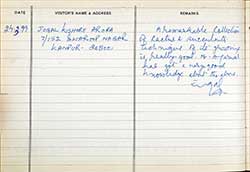 DATE VISITOR'S NAME & ADDRESS REMARKS
24/3/99 JUGAL KISHORE ARORA A remarkable Collection
7/152 SWAROOP NAGAR of Cactus & succulents
KANPUR - 208002 technique of its growing
is really good.
has got a very good
knowledge about the